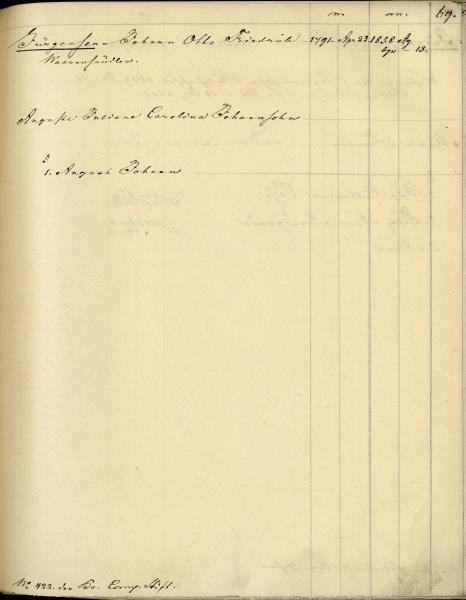 n. m. 69.
Jürgensen Johann Otto Friedrich 1791. Apr 23. 1858 Ag
Waarenhändler. 13.
Auguste Juliane Carolina Johannsohn
1. August Johann
No 422. der Comp. Stift.